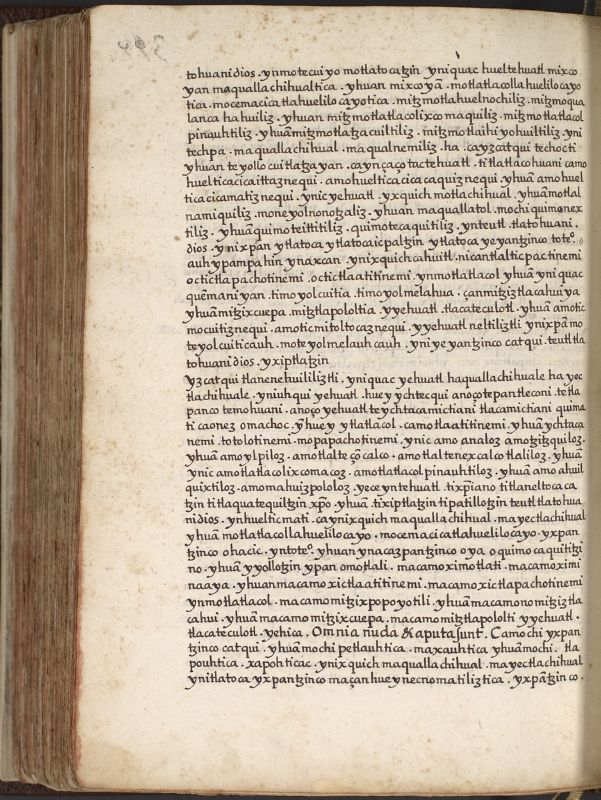 tohuani dios . ynmotecuiyo motlatocatzin yniquac hueltehuatl mixco
yan maquallachihualtica . yhuan mixcoyā . motlatlacolla huelilocayo
tica . mocemacicatlahuelilocayotica . mitzmotlahuelnochiliz . mitzmoqua
lancahuiliz . yhuan mitzmotlatlacolixcomaquiliz . mitzmotlatlacol
pinauhtiliz . yhuā mitzmotlatzacuiltiliz . mitzmotlaihiyohuiltiliz . yni
techpa . maquallachihual . maqualnemiliz . ha . cayzcatqui techocti
yhuan teyollocuitlatzayan . caynçaço tactehuatl . titlatlacohuani camo
huelticacicaittaznequi . amohuelticacicacaquiznequi . yhuā amohuel
ticacicamatiznequi . ynicyehuatl . yxquich motlachihual . yhuā motlal
namiquiliz . moneyolnonotzaliz . yhuan maquallatol . mochi quimonex
tiliz . yhuā quimoteittitiliz . quimotecaquitiliz . ynteutl . tlatohuani .
dios . ynixpan ytlatoca ytlatocaicpaltzin ytlatocayeyantzinco toteº. //
auh ypampahin ynaxcan . ynixquich cahuitl . nican tlalticpac tinemi
octictlapachotinemi . octictlaatitinemi . ynmotlatlacol yhuan yniquac
quēmaniyan . timoyolcuitia . timoyolmelahua . çan mitziztlacahuiya
yhuā mitzixcuepa . mitztlapololtia . yyehuatl . tlacateculotl . yhuā amotic
mocuitiznequi . amoticmitoltocaznequi . yyehuatl neltiliztli ynixpā mo
teyolcuiticauh . moteyolmelauhcauh . yniyeyantzinco catqui . teutl tla
tohuani dios . yxiptlatzin
yzcatqui tlanenehuililiztli . yniquac yehuatl haquallachihuale ha yec
tlachihuale . yniuhqui yehuatl . huey ychtecqui anoçotepantleconi . tetla
panco temohuani . anoço yehuatl teychtacamictiani tlacamictiani quima
ti caonez omachoc . yhuey ytlatlacol . camotlaatitinemi . yhuā ychtaca
nemi . totolotinemi . mopapachotinemi . ynic amo analoz amotzitzquiloz .
yhuā amo ylpiloz . amotlalteçōcalco . amotlaltenexcalcotlaliloz . yhuā
ynic amotlatlacolixcomacoz . amotlatlacolpinauhtiloz . yhuā amo ahuil
quixtiloz . amomahuizpololoz . yece yntehuatl . tixpiano titlaneltoca ca
tzin titlaquatequiltzin xpō . yhuā . tixiptlatzin tipatillotzin teutl tlatohua
ni dios . ynhuelticmati . caynixquich maquallachihual . mayectlachihual
yhuā motlatlacolla huelilocayo . mocemacicatlahuelilocayo . yxpan
tzinco ohacic . yntoteº. yhuan ynacazpantzinco oya oquimocaquitītzi
no . yhuā yyollotzin ypan omotlali . macamo ximotlati . macamo ximi
naaya . yhuan macamo xictlaatitinemi . macamo xictlapachotinemi
ynmotlatlacol . macamo mitzixpopoyotili . yhuā macamo nomitziztla
cahui . yhuā macamo mitzixcuepa . macamo mitztlapololti yyehuatl .
tlacateculotl . yehica . Omnia nuda & aputa sunt . Camochi yxpan
tzinco catqui . yhuā mochi petlauhtica . maxauhtica yhuā mochi . tla
pouhtica . xapohticac . ynixquich maquallachihual . mayectlachihual
ynitlatoca yxpantzinco maçan hueynecnomatiliztica . yxpātzinco .